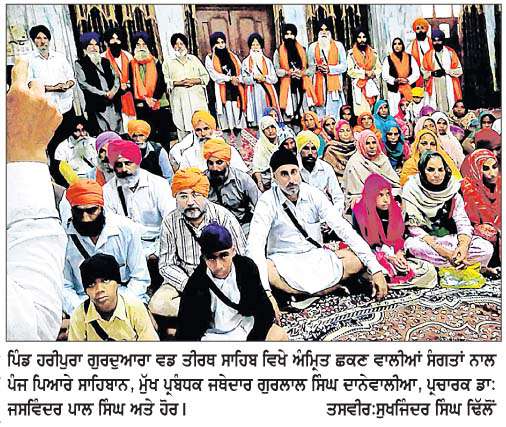 ਪਿੰਡ ਹਰੀਪੁਰਾ ਗੁਰਦੁਆਰਾ ਵਡ ਤੀਰਥ ਸਾਹਿਬ ਵਿਖੇ ਅੰਮ੍ਰਿਤ ਛਕਣ ਵਾਲੀਆਂ ਸੰਗਤਾਂ ਨਾਲ
ਪੰਜ ਪਿਆਰੇ ਸਾਹਿਬਾਨ, ਮੁੱਖ ਪ੍ਰਬੰਧਕ ਜਥੇਦਾਰ ਗੁਰਲਾਲ ਸਿੰਘ ਦਾਨੇਵਾਲੀਆ, ਪ੍ਰਚਾਰਕ ਡਾ:
ਜਸਵਿੰਦਰ ਪਾਲ ਸਿੰਘ ਅਤੇ ਹੋਰ। ਤਸਵੀਰ:ਸੁਖਜਿੰਦਰ ਸਿੰਘ ਢਿੱਲੋਂ